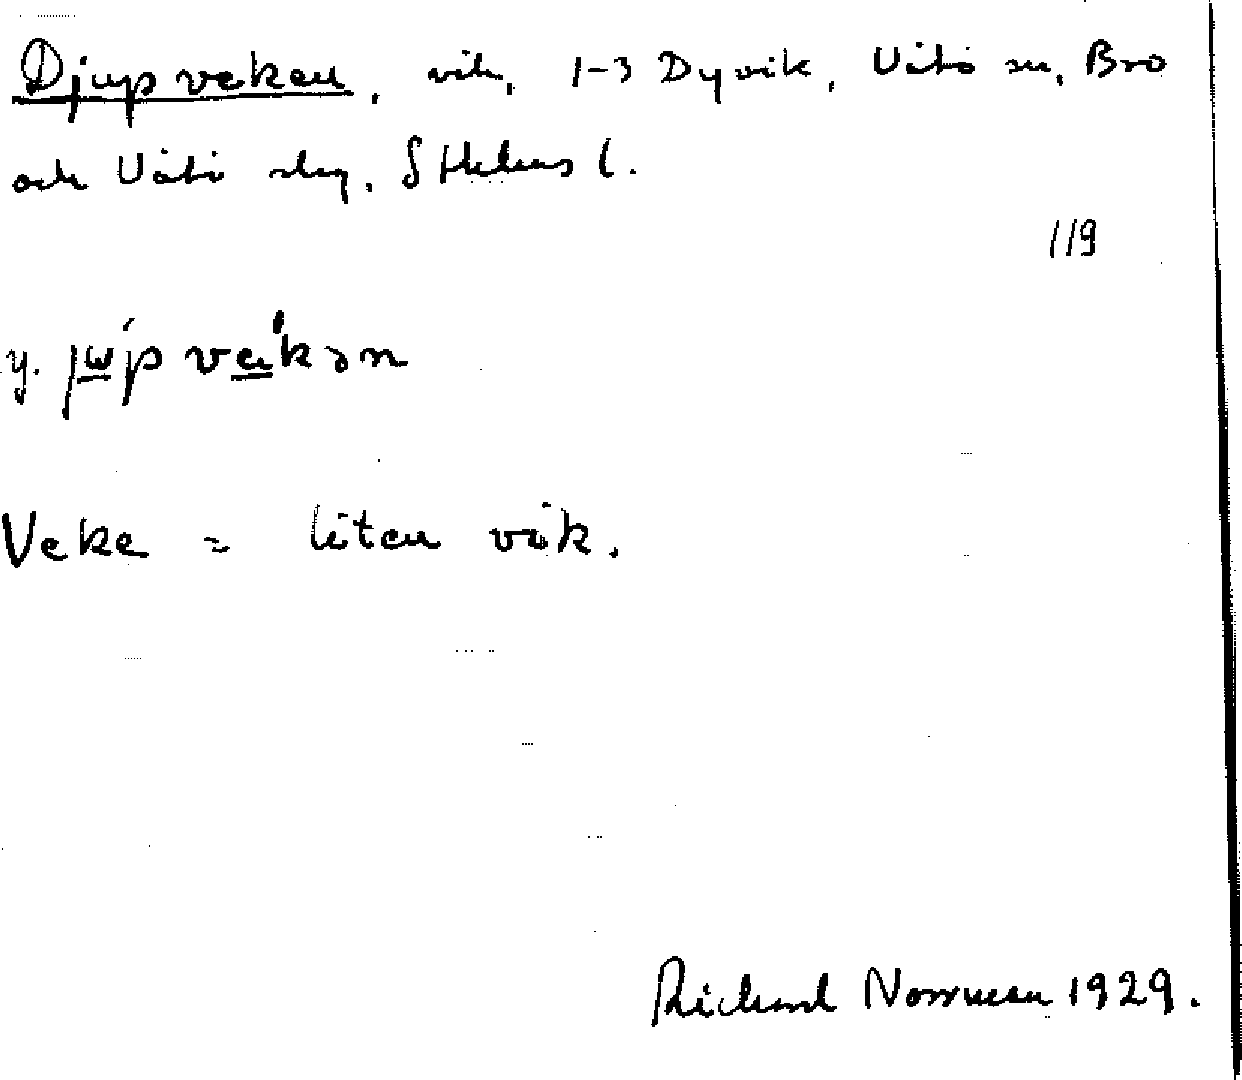 Djupveken, vik, 1-3 Dyvik, Vätö sn, Bro
och Vätö skg. Sthlms l.
119
y.
Veke = liten vik.
Richard Norrman 1929.